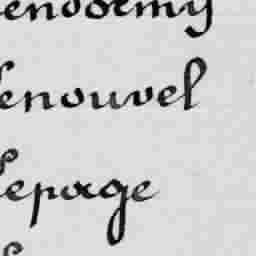 endormy
enouvel
epage